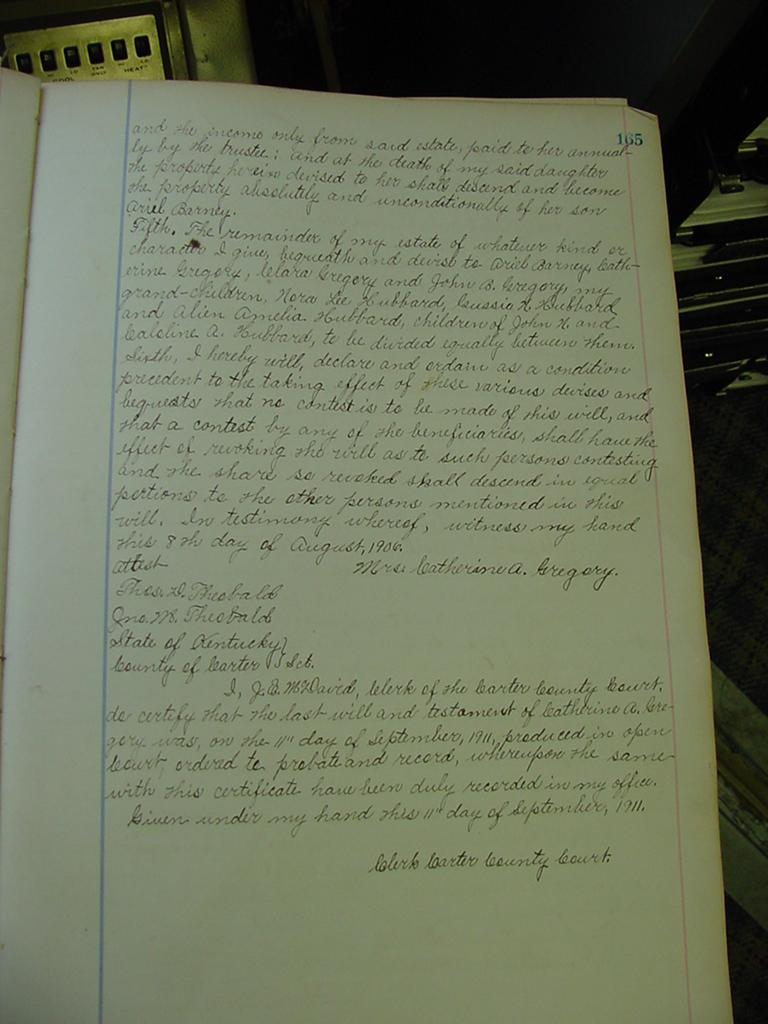 165
and the income only from said estate, paid to her annual-
ly by the trustee; and at the death of my said daughter
the property herein devised to her shall descend and become
the property absolutely and unconditionally of her son
Ariel Barney.
Fifth. The remainder of my estate of whatever kind or
character I give, bequeath and devise to Ariel Barney, Cath-
erine Gregory, Clara Gregory and John B. Gregory, my
grand-children, Nora Lee Hubbard, Gussie N. Hubbard
and Alien Amelia Hubbard, children of John N. and
Calsline A. Hubbard, to be divided equally between them.
Sixth, I hereby will, declare and ordain as a condition
precedent to the taking effect of these various devises and
bequests that no contest is to be made of this will, and
that a contest by any of the beneficiaries, shall have the
effect of revoking the will as to such persons contesting
and the share so revoked shall descend in equal
portions to the other persons mentioned in this
will. In testimony whereof, witness my hand
this 8th day of August, 1906.
Attest Mrs. Catherine A. Gregory.
Thos. D. Theobald
Jno. M. Theobald
State of Kentucky}
County of Carter } Sct.
I, J. E. McDavid, Clerk of the Carter County Court,
do certify that the last will and testament of Catherine A. Gre-
gory was, on the 11" day of September, 1911, produced in open
Court, ordered to probate and record, whereupon the same
with this certificate have been duly recorded in my office.
Given under my hand this 11" day of September, 1911.
Clerk Carter County Court.
COOL
HEAT